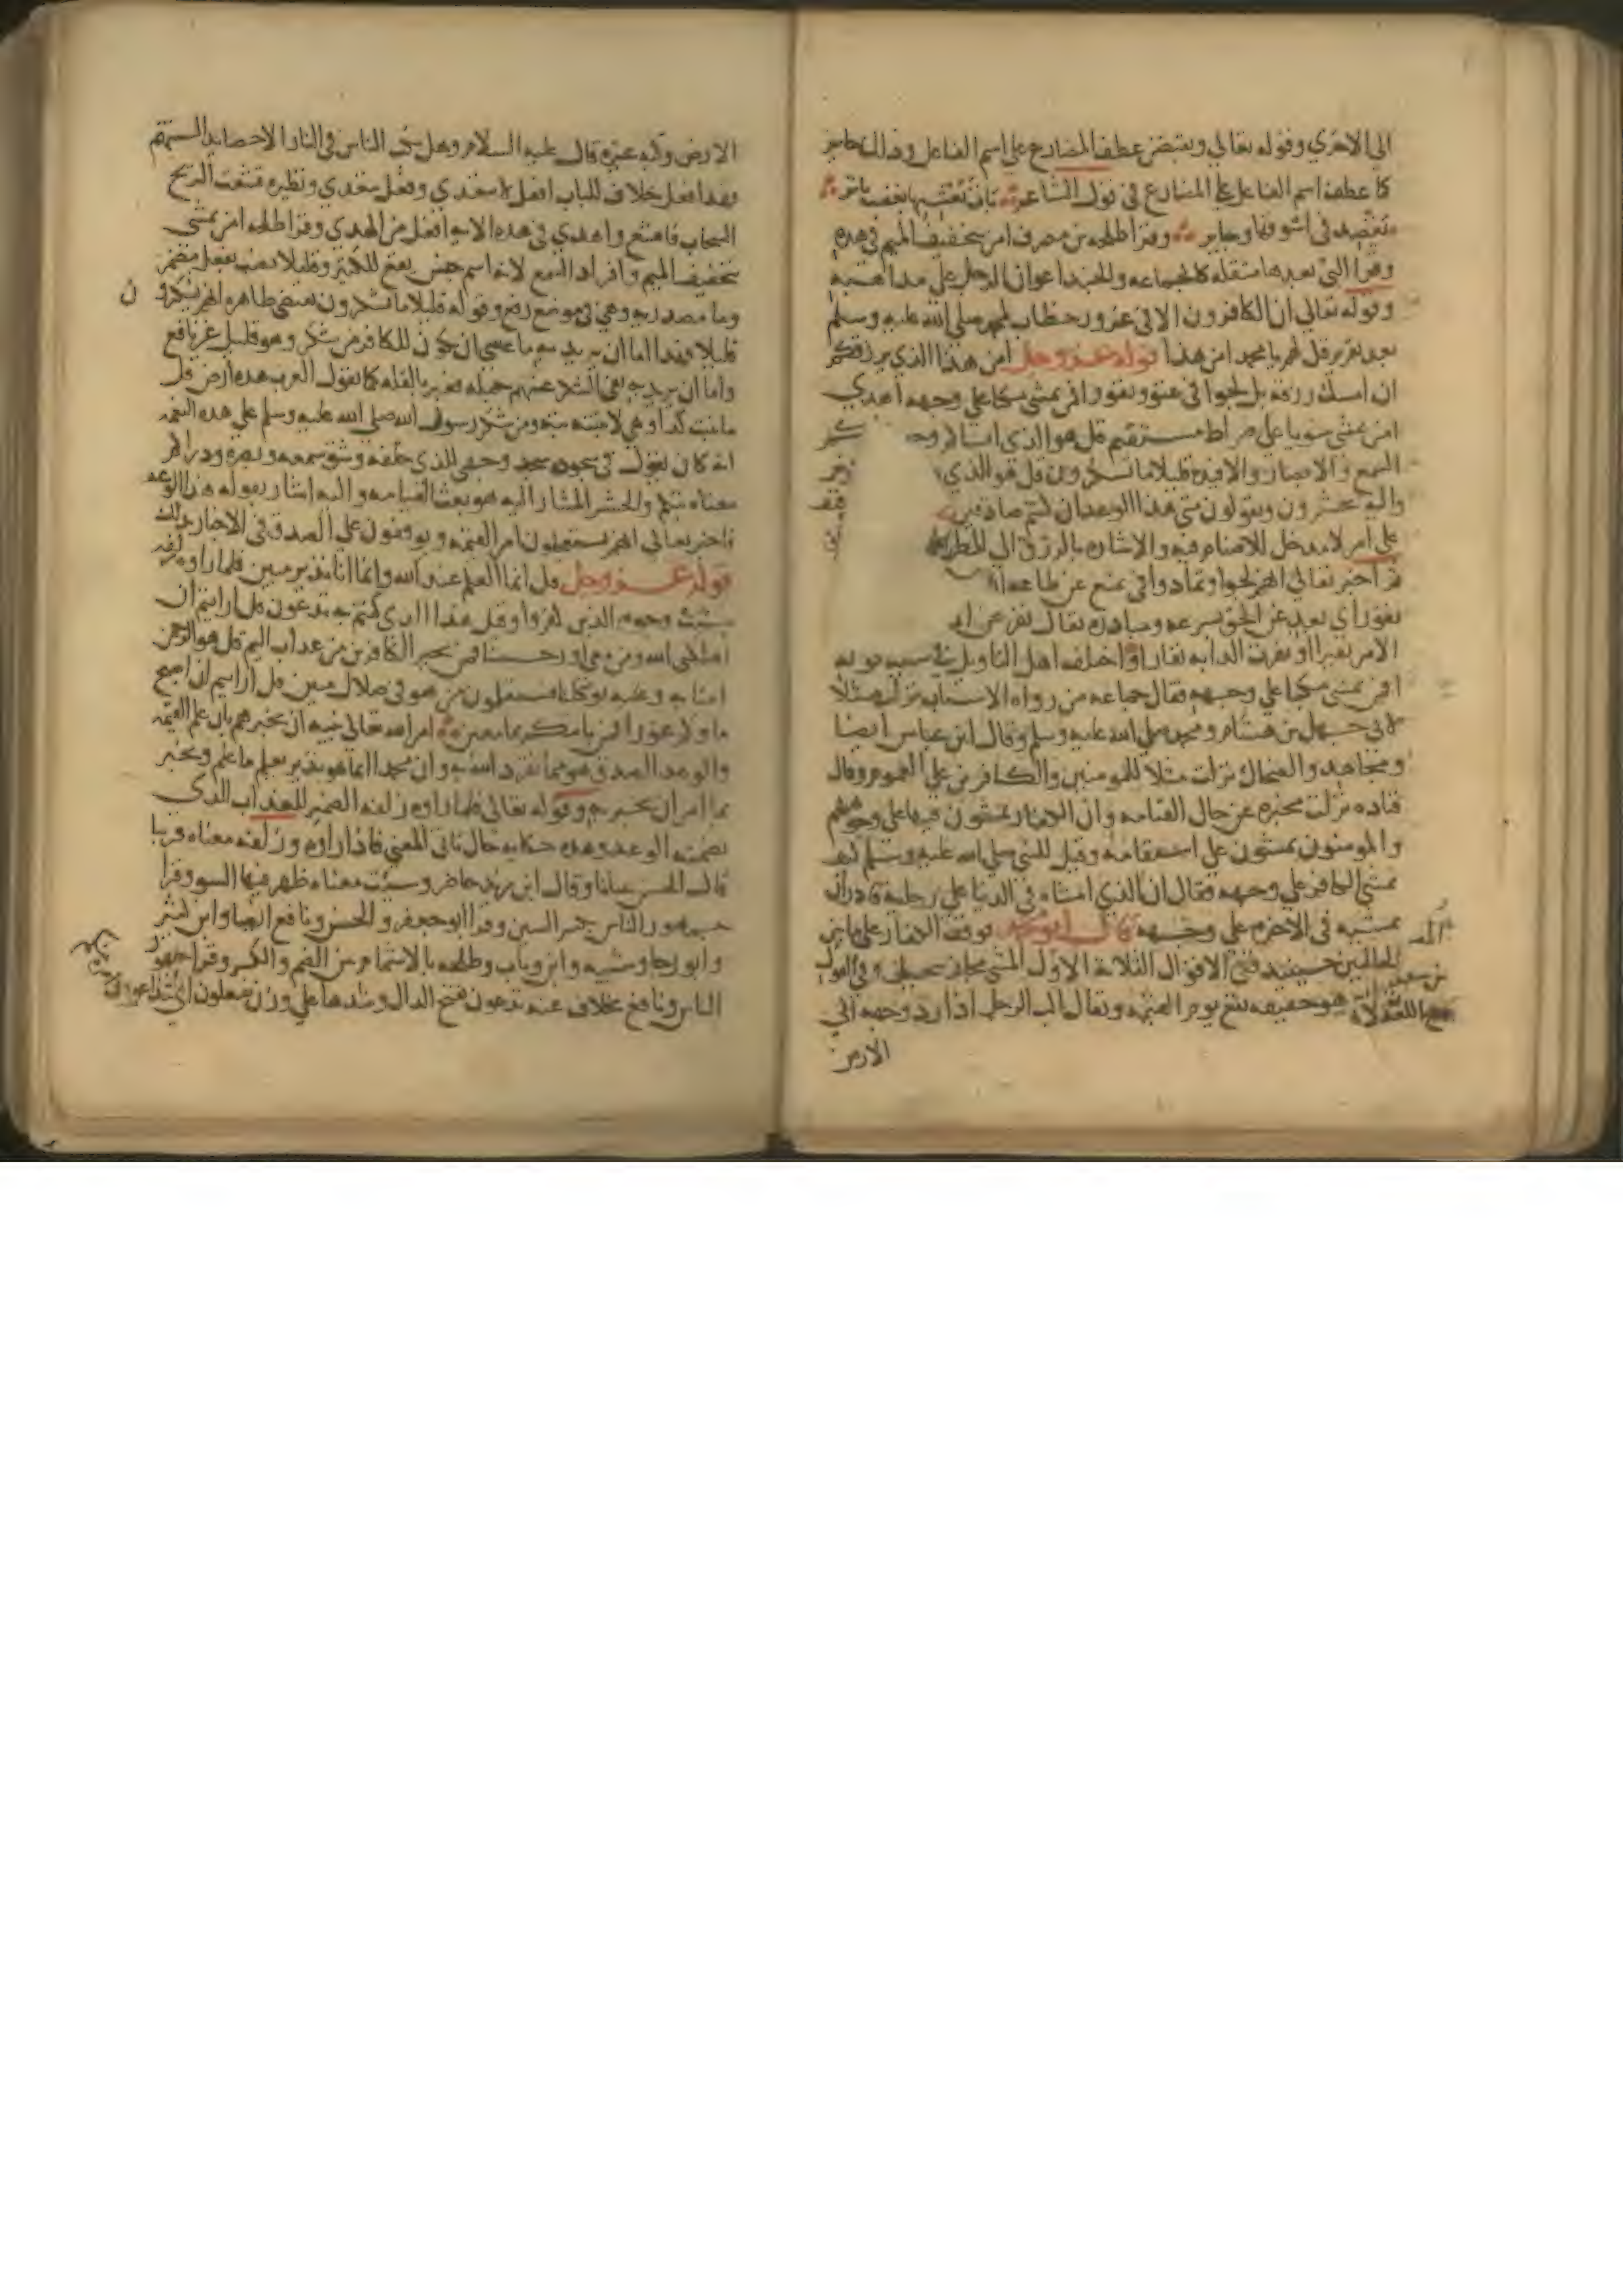 الى الاخرى وقوله تعالى ويقبضن عطف المضارع على اسم الفاعل وذلك جايز
كما عطف اسم الفاعل على المضارع في قول الشاعر بات يعشيها بعضب باتر
يقصد في اسوقها وجاير وقرا طلحة بن مصرف امن بتخفيف الميم في هذه
وقرا التي بعدها مثقلة كالجماعة والجند اعوان الرجل على مذاهبه
وقوله تعالى ان الكافرون الا في غرور خطاب لمحمد صلى الله عليه وسلم
بعد تقرير قل لهم يا محمد امن هذا قوله عز وجل امن هذا الذي يرزقكم
ان امسك رزقه بل لجوا في عتو ونفور افمن يمشي مكبا على وجهه اهدى
امن يمشي سويا على صراط مستقيم قل هو الذي انشاكم وجعـ
السمع والابصار والافيدة قليلا ما تشكرون قل هو الذي
واليه تحشرون ويقولون متى هذا الوعد ان كنتم صادقين
على امر لا مدخل للاصنام فيه والاشارة بالرزق الى المطر
ثم اخبر تعالى انهم لجوا وتمادوا في تمنع عن طاعة
نفور اي بعد عن الحق بسرعة ومبادرة يقال نفر عن
الامر نفيرا ونفرت الدابة نفارا واختلف اهل التاويل في سبب قوله
افمن يمشي مكبا على وجهه فقال جماعة من رواة الاسباب نزلت مثلا
لابي جهل بن هشام ومحمد صلى الله عليه وسلم وقال ابن عباس ايضا
ومجاهد والضحاك نزلت مثلا للمومنين والكافرين على العموم وقال
قتادة نزلت مخبرة عن حال القيامة وان الكفار يمشون فيها على وجوههم
والمومنون يمشون على استقامة وقيل للنبي صلى الله عليه وسلم كيف
يمشي الكافر على وجهه فقال ان الذي امشاه في الدنيا على رجليه قادر ان
يمشيه في الاخرة على وجهه قال ابو محمد فوقف الكفار على هاتين
الحالتين حينيذ ففي الاقوال الثلاثة الاول المشي مجاز وفي القول
هو حقيقة يقع يوم القيمة ويقال اكب الرجل اذا رد وجهه الى
الارض
الارض وكبه غيره قال عليه السلام وهل يكب الناس في النار الا حصايد السنتهم
فهذا فعل خلاف للباب افعل لا يتعدى وفعل يتعدى ونظيره قشعت الريح
السحاب فاقشع واهدى في هذه الاية افعل من الهدى وقرا طلحة امن يمشي
بتخفيف الميم وافراد السمع لانه اسم جنس يقع للكثير وقليلا نصب بفعل مضمر
وما مصدرية وهي في موضع رفع وقوله قليلا ما تشكرون يقتضي ظاهره انهم يشكرون
قليلا فهذا اما ان يريد به ما عسى ان يكون للكافر من شكر وهو قليل غير نافع
واما ان يريد به نفي الشكر عنهم جملة فعبر بالقلة كما تقول العرب هذه ارض قل
ما تنبت كذا وهي لا تنبته بتة ومن شكر رسول الله صلى الله عليه وسلم على هذه النعمة
انه كان يقول في سجوده سجد وجهي للذي خلقه وشق سمعه وبصره وذراكم
معناه بثكم والحشر المشار اليه هو بعث القيامة واليه اشار بقوله هذا الوعد
فاخبر تعالى انهم يستعجلون امر القيمة ويوقفون على الصدق في الاخبار بذلك
قوله عز وجل قل انما العلم عند الله وانما انا نذير مبين فلما راوه زلفة
سيئت وجوه الذين كفروا وقيل هذا الذي كنتم به تدعون قل ارايتم ان
اهلكني الله ومن معي او رحمنا فمن يجير الكافرين من عذاب اليم قل هو الرحمن
امنا به وعليه توكلنا فستعلمون من هو في ضلال مبين قل ارايتم ان اصبح
ماوكم غورا فمن ياتيكم بماء معين امر الله تعالى نبيه ان يخبرهم بان علم القيمة
والوعد الصدق هو مما تفرد الله به وان محمدا انما هو نذير يعلم ما علم ويخبر
بما امر ان يخبر به وقوله تعالى فلما راوه زلفة الضمير للعذاب الذي
تضمنه الوعد وهذه حكاية حال تاتي المعنى فاذا راوه وزلفة معناه قريبا
قال الحسن عيانا وقال ابن زيد حاضر وسيئت معناه ظهر فيها السو وقرا
جمهور الناس بكسر السين وقرا ابو جعفر والحسن ونافع ايضا وابن كثير
وابو رجا وشيبة وابن وثاب وطلحة بالاشمام بين الضم والكسر وقرا جمهور
الناس ونافع بخلاف عنه تدعون بفتح الدال وشدها على وزن تفتعلون اي تتداعون